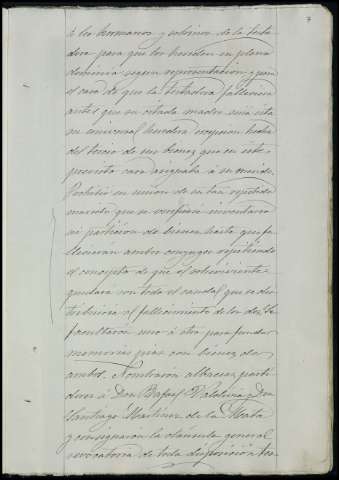 7
á los hermanos y sobrinos de la testa-
dora para que los hereden en pleno
dominio segun representacion, y para
el caso de que la testadora falleciera
antes que su citada madre seria esta
su universal heredera escepcion hecha
del tercio de sus bienes que en este
presunto caso asignaba á su marido.
Prohibio en union de su tan repetido
marido que se verificara inventario
ni particion de bienes hasta que fa-
llecieran ambos conyuges repitiendo
el concepto de que el sobreviviente
quedará con todo el caudal que se dis-
tribuiria al fallecimiento de los dos. Se
facultaron uno á otro para fundar
memorias pias con bienes de
ambos. Nombraron albaceas parti-
dores á Don Rafael Valdivia, y Don
Santiago Martinez de la Mata
y consignaron la clausula general
revocatoria de toda disposicion tes-